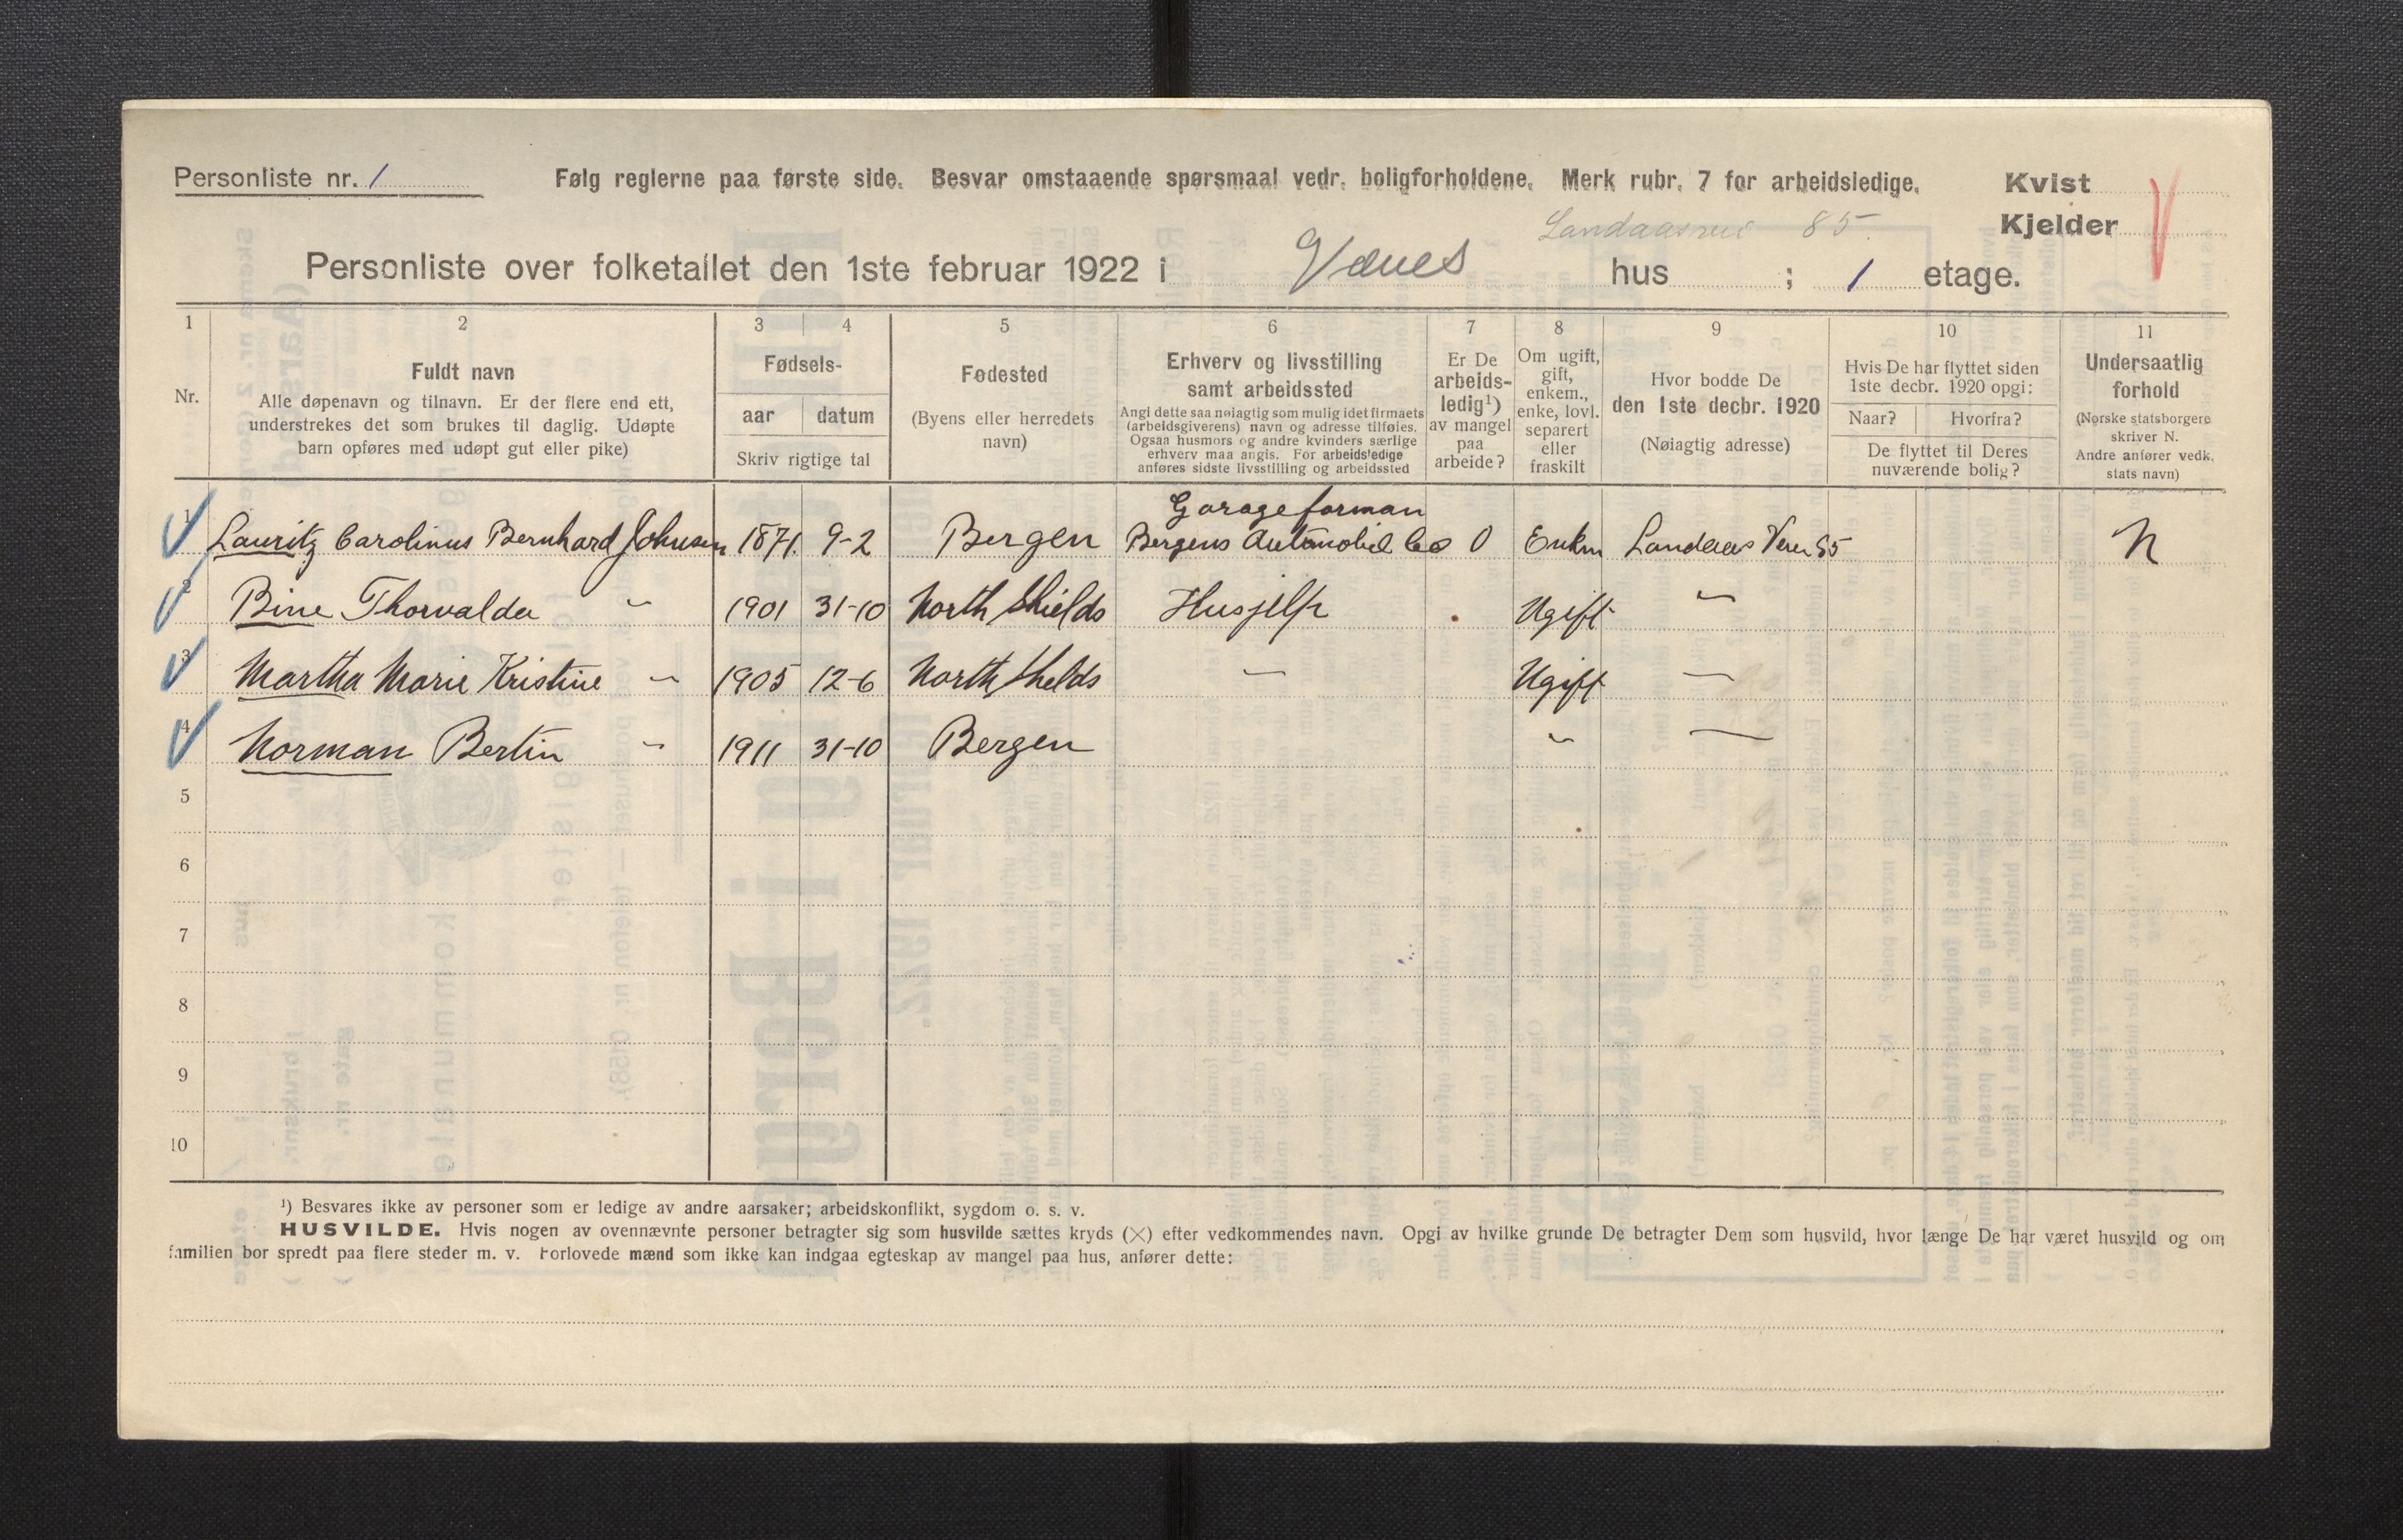 Personliste nr. 1 Følg reglerne paa første side. Besvar omstaaende spørsmaal vedr. boligforholdene. Merk rubr. 7 for arbeidsledige. Kvist
Landaasvei 85. Kjelder
Personliste over folketallet den 1ste februar 1922 i hus ; 1 etage.
1 2 3 4 5 6 7 8 9 10 11
Nr.
Fuldt navn
Alle døpenavn og tilnavn. Er der flere end ett,
understrekes det som brukes til daglig. Udøpte
barn opføres med udøpt gut eller pike)
Fødsels-
aar datum
Skriv rigtige tal
Fødested
(Byens eller herredets
navn)
Erhverv og livsstilling
samt arbeidssted
Angi dette saa nøiagtig som mulig idet firmaets
(arbeidsgiverens) navn og adresse tilføies.
Ogsaa husmors og andre kvinders særlige
erhverv maa angis. For arbeidsledige
anføres sidste livsstilling og arbeidssted
Er De
arbeids-
ledig¹)
av mangel
paa
arbeide?
Om ugift,
gift,
enkem.,
enke, lovl.
separert
eller
fraskilt
Hvor bodde De
den 1ste decbr. 1920
(Nøiagtig adresse)
Hvis De har flyttet siden
1ste decbr. 1920 opgi:
Naar? Hvorfra?
De flyttet til Deres
nuværende bolig?
Undersaatlig
forhold
(Norske statsborgere
skriver N.
Andre anfører vedk.
stats navn)
Garageforman
1 Lauritz Carolinus Bernhard Johnsen 1871. 9-2 Bergen Bergens Automobil Co 0 Enkm Landaas Veien 85 N
2 Bine Thorvalda " 1901 31-10 North Shields Husjelp Ugift "
3 Martha Marie Kristine " 1905 12-6 North Shelds — Ugift —
4 Norman Bertin " 1911 31-10 Bergen " —
5
6
7
8
9
10
¹) Besvares ikke av personer som er ledige av andre aarsaker; arbeidskonflikt, sygdom o. s. v.
HUSVILDE. Hvis nogen av ovennævnte personer betragter sig som husvilde sættes kryds (×) efter vedkommendes navn. Opgi av hvilke grunde De betragter Dem som husvild, hvor længe De har været husvild og om
familien bor spredt paa flere steder m. v. Forlovede mænd som ikke kan indgaa egteskap av mangel paa hus, anfører dette: